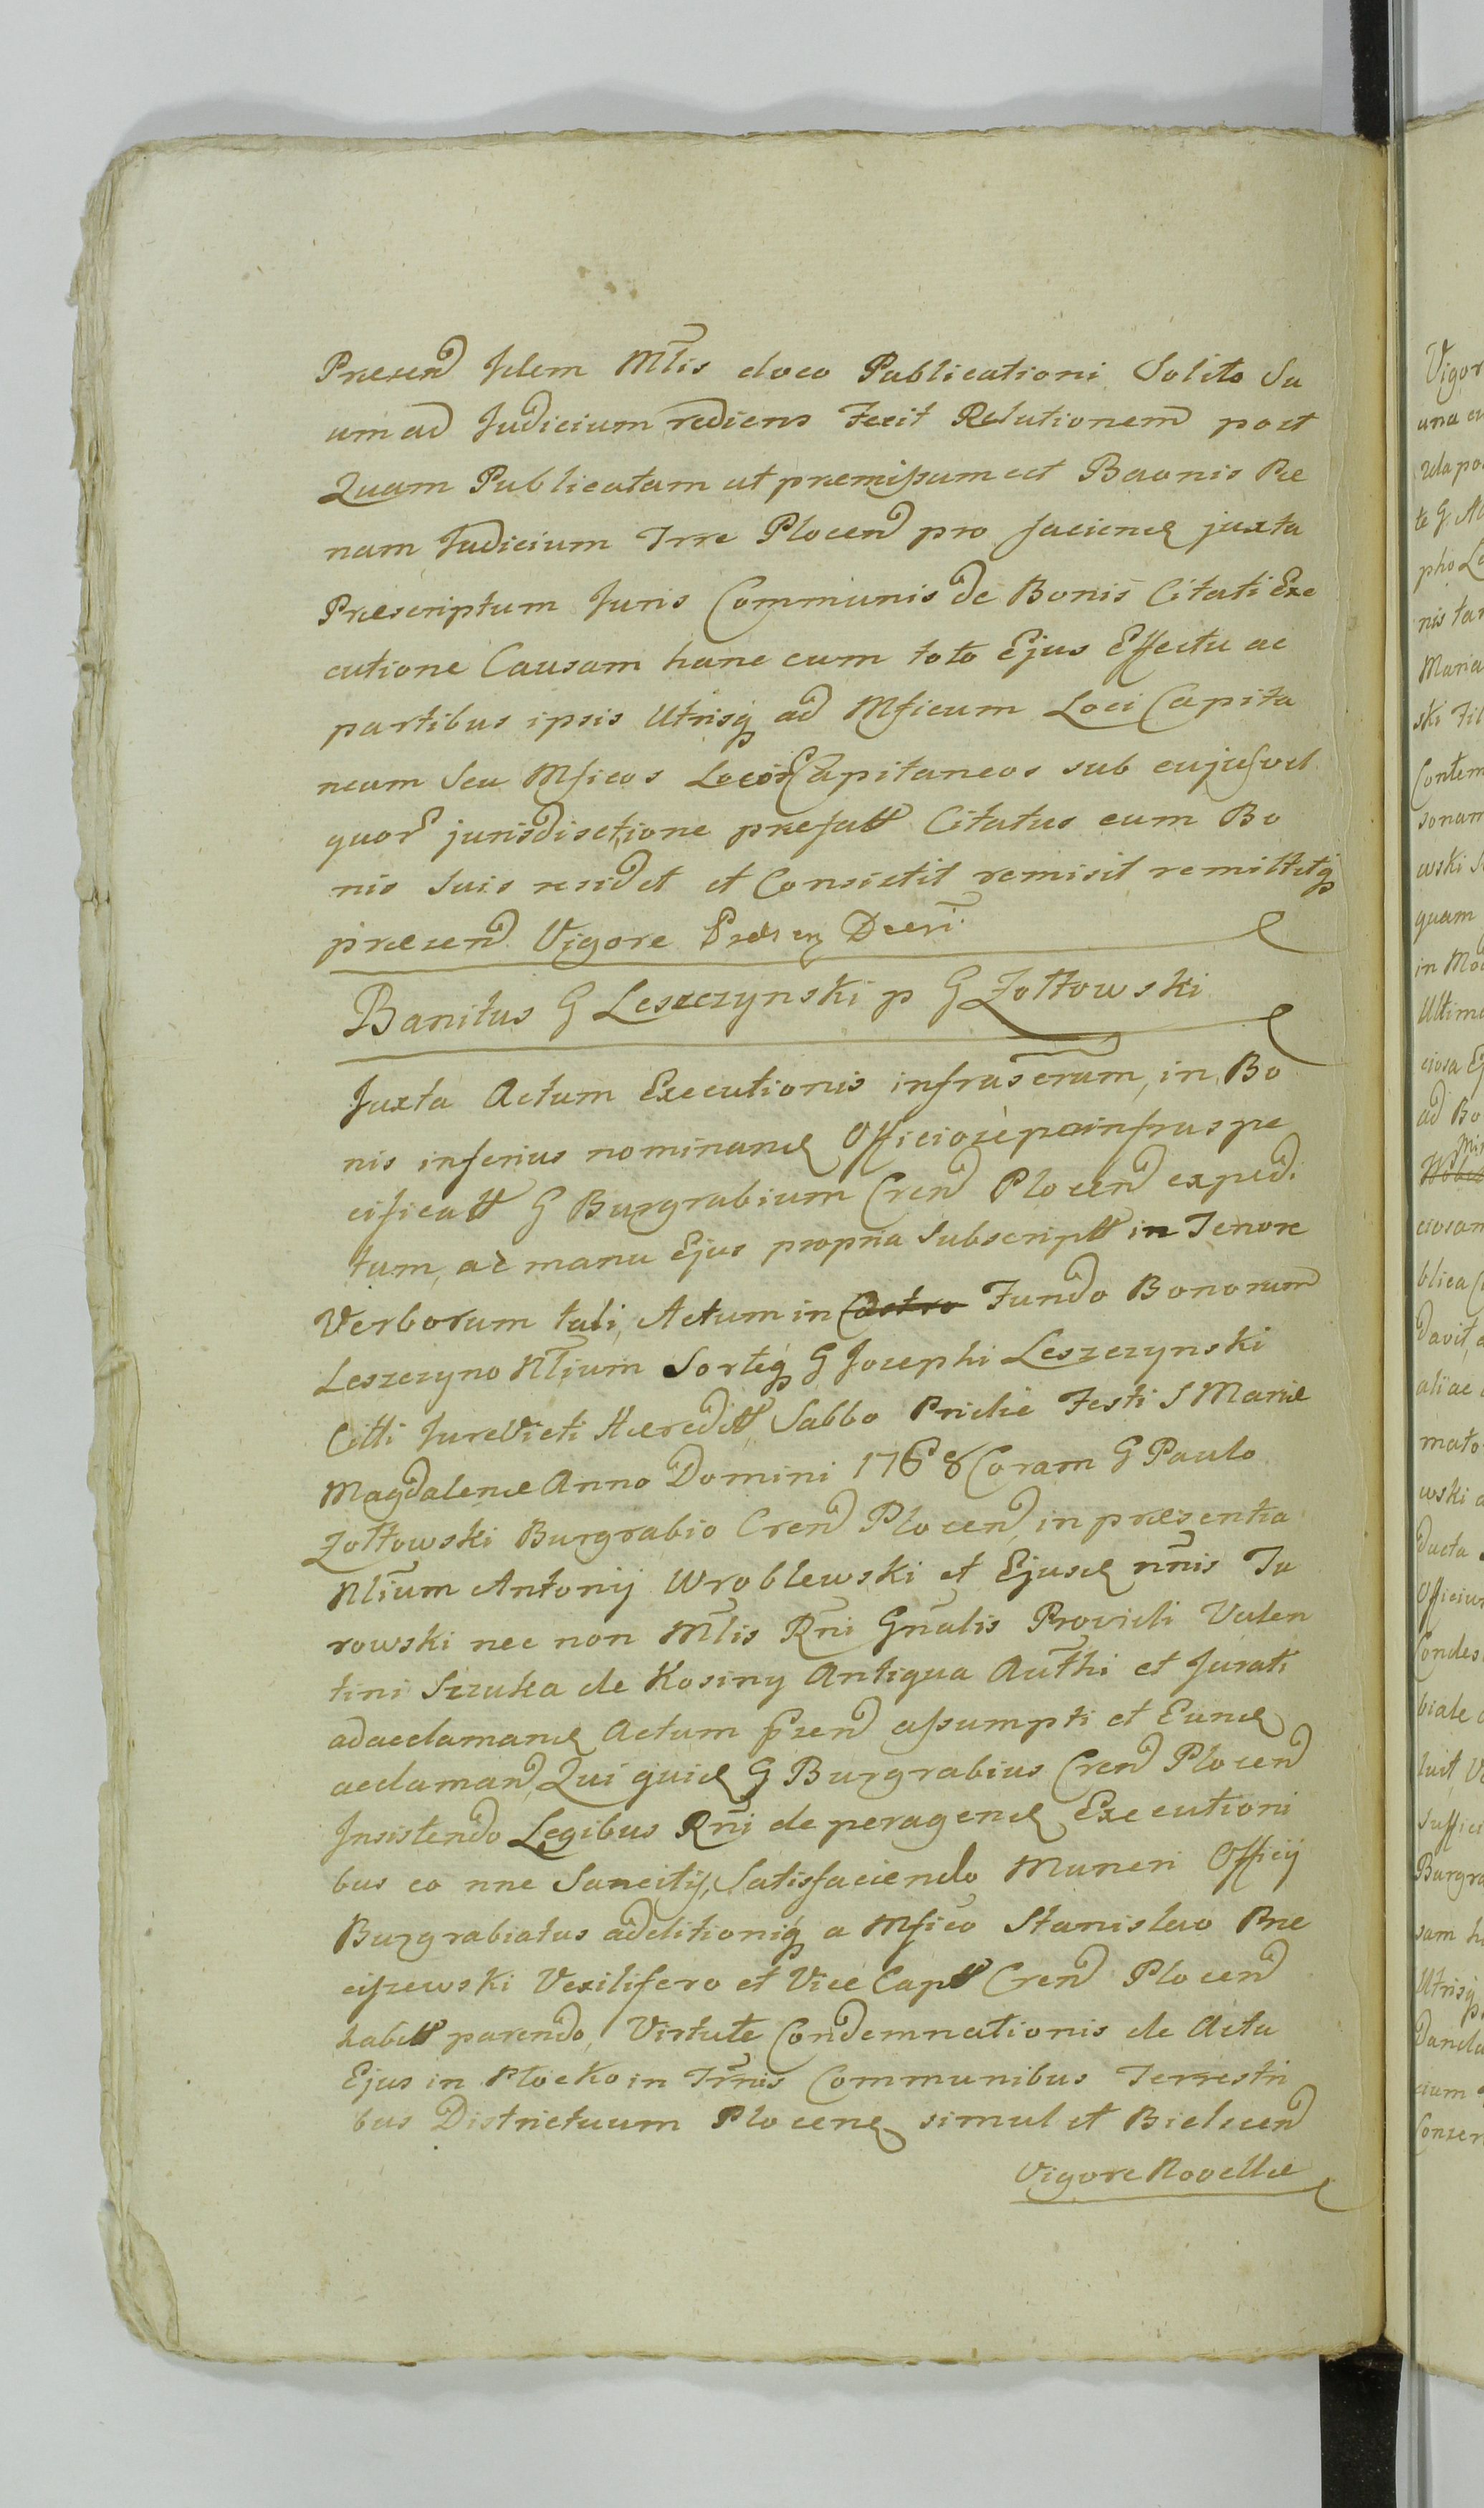 Præsend Idem Mtlis eloco Publicationi Solito Su
um ad Judicium rediens Fecit Relationem post
Quam Publicatam ut premissum est Baonis Pæ
nam Judicium Trre Plocen pro faciend juxta
Præscriptum Juris Communis de Bonis Citati Exe
cutione Causam hanc cum toto Ejus Effectu ac
partibus ipsis Utrisq ad Mficum Loci Capita
neum Seu Mficos Locor Capitaneos sub cujusvel
quor jurisdisctione præfatt Citatus cum Bo
nis Suis residet et Consistit remisit remittitq
præsend Vigore Decri
Banitus G Leszczynski p G Zołtowski
Juxta Actum Executionis infrascrum, in Bo
nis inferius nominand Officiose p infraspe
cificatt G Burgrabium Cren Plocen expedi
tum, ac manu Ejus propria Subscriptt in Tenore
Verborum tali, Actum in Castro Fundo Bonorum
Leszczyno Ntium Sorteq G Josephi Leszczynski
Citti Jurevicti Hæreditt Sabbo Pridie Festi S Mariæ
Magdalenæ Anno Domini 1768 Coram G Paulo
Zołtowski Burgrabio Cren Plocen in præsentia
Ntium Antonij Wroblewski et Ejusd nnis Tu
rowski nec non Mtlis Rni Gnalis Providi Valen
tini Szuka de Kosiny Antiqua Authi et Jurati
adacclamand Actum Pzen assumpti et Eund
acclaman, Qui quid G Burgrabius Cren Plocen
Insistendo Legibus Rni de peragend Executioni
bus eo nne Sancitis, Satisfaciendo Muneri Officij
Burgrabiatus adelitioniq a Mfico Stanislao Prze
ciszewski Vexilifero et Vice Captt Cren Plocen
habitt parendo, Virtute Condemnationis de Actu
Ejus in Plocko in Trnis Communibus Terrestri
bus Districtuum Plocens simul et Bielscen
Vigore Novellæ